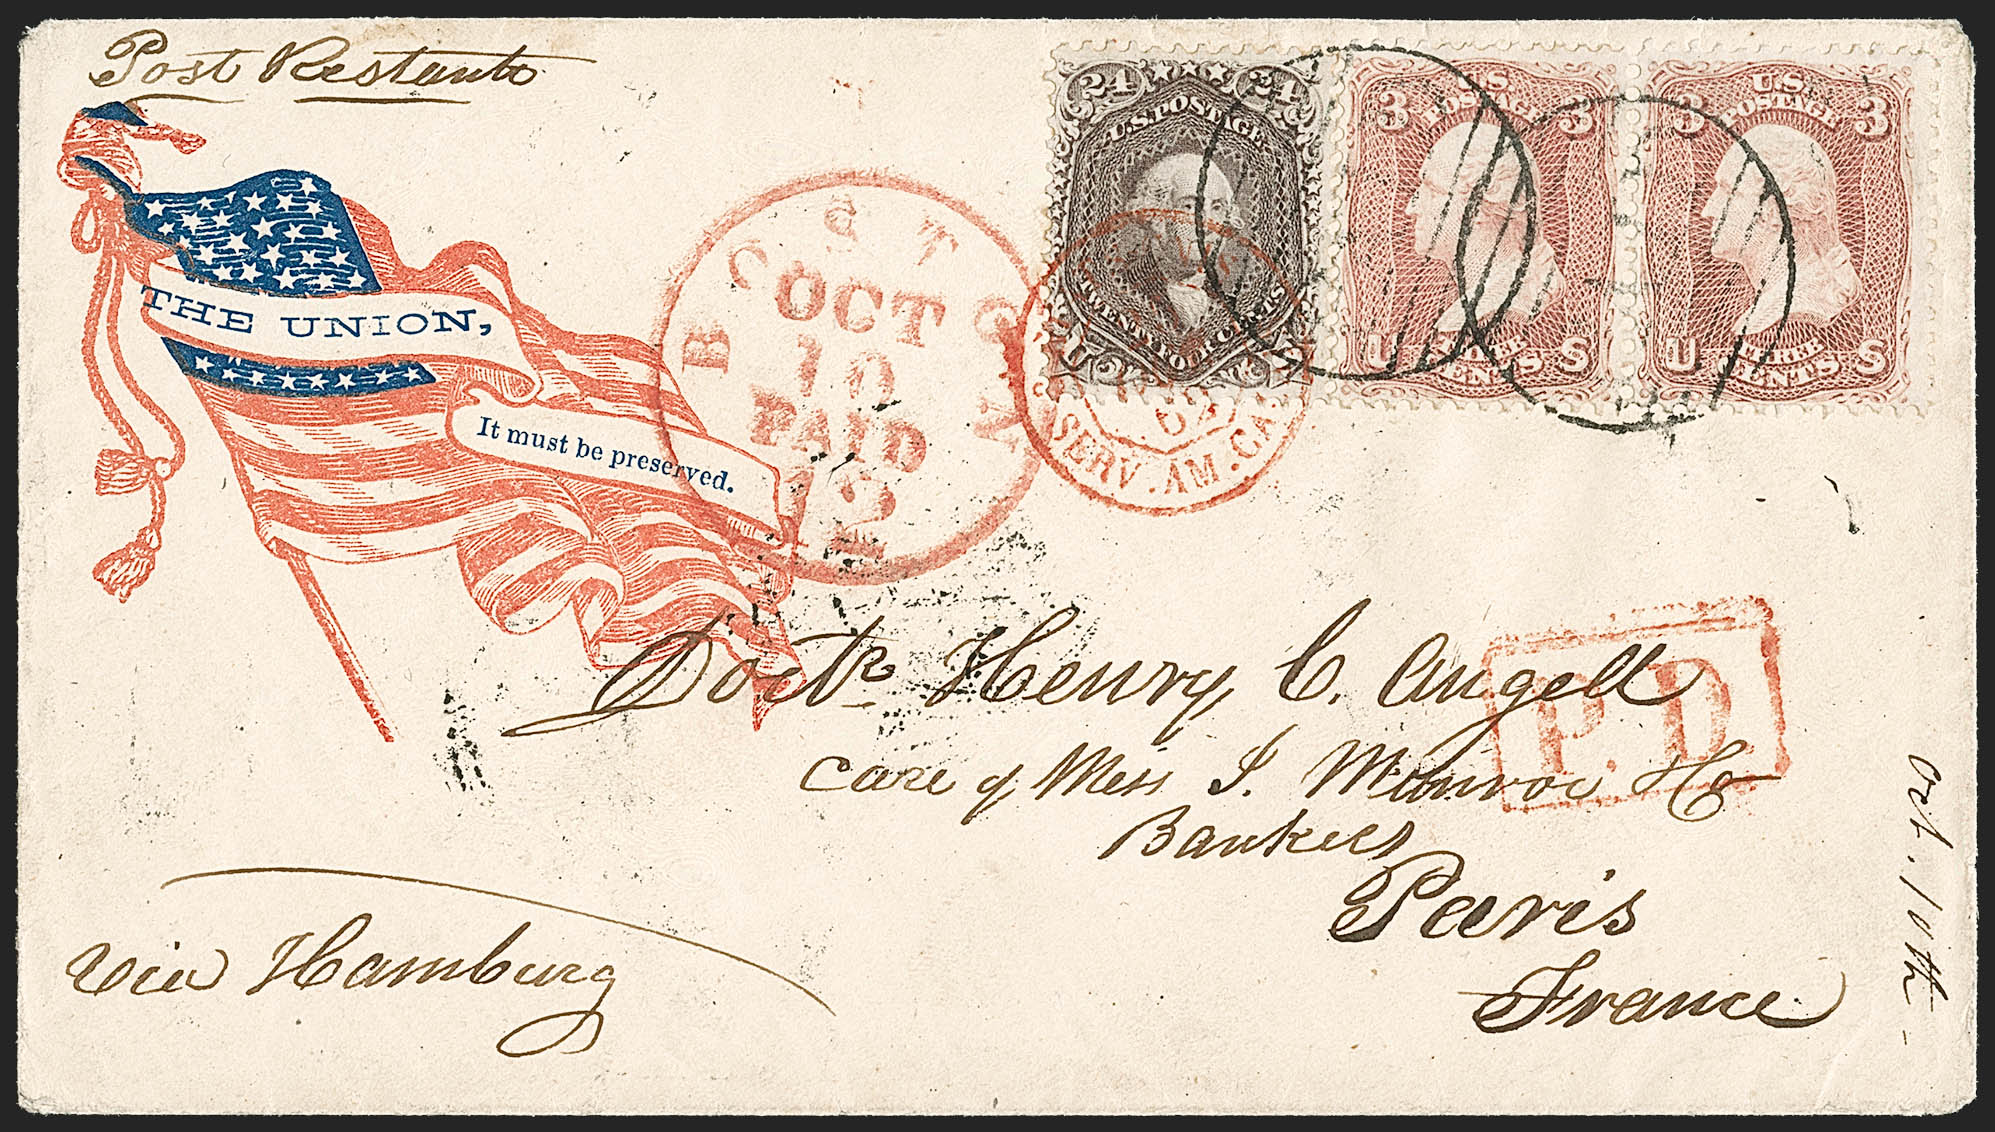 Post Restante
24 24
U.S. POSTAGE
TWENTY FOUR CENTS
U S
3 3
U.S.
POSTAGE
U S
THREE
CENTS
3 3
U.S.
POSTAGE
U S
THREE
CENTS
BOSTON
OCT
10
PAID
12
SERV. AM. CA.
THE UNION,
It must be preserved.
P.D.
Doctr Henry C. Angell
Care of Mess J. Munroe & Co
Bankers
Paris
France
via Hamburg
Oct. 10th